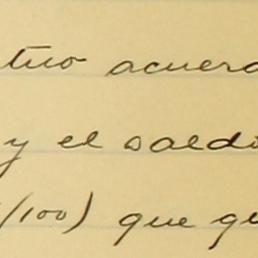 tuo acuerd
y el saldo
/100) que qu